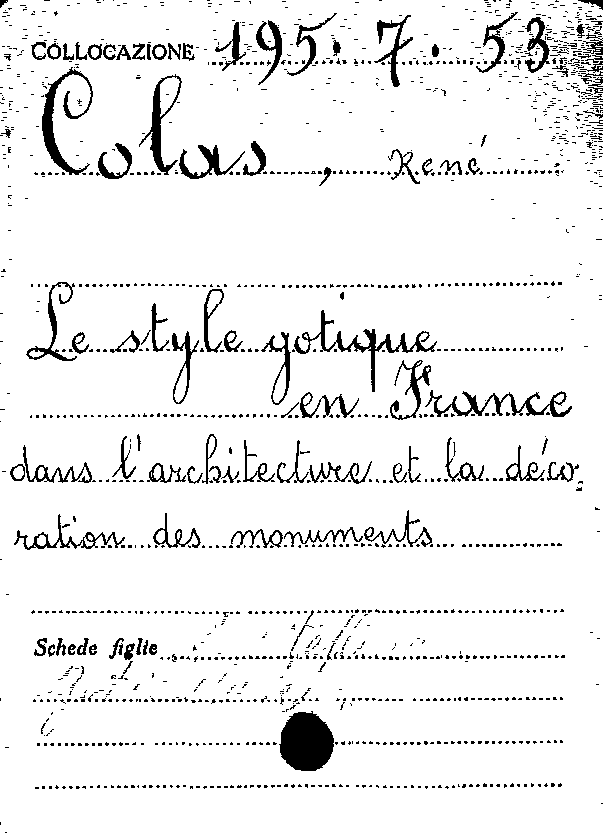 COLLOCAZIONE 195. 7. 53
Colas, René
Le style gotique
en France
dans l'architecture et la déco-
ration des monuments
Schede figlie